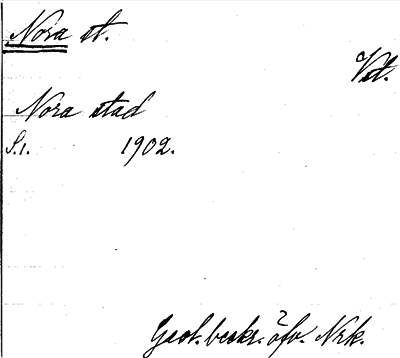 Nora st.
Vst.
Nora stad
S.1. 1902.
Geol. beskr. öfv. Nrk.